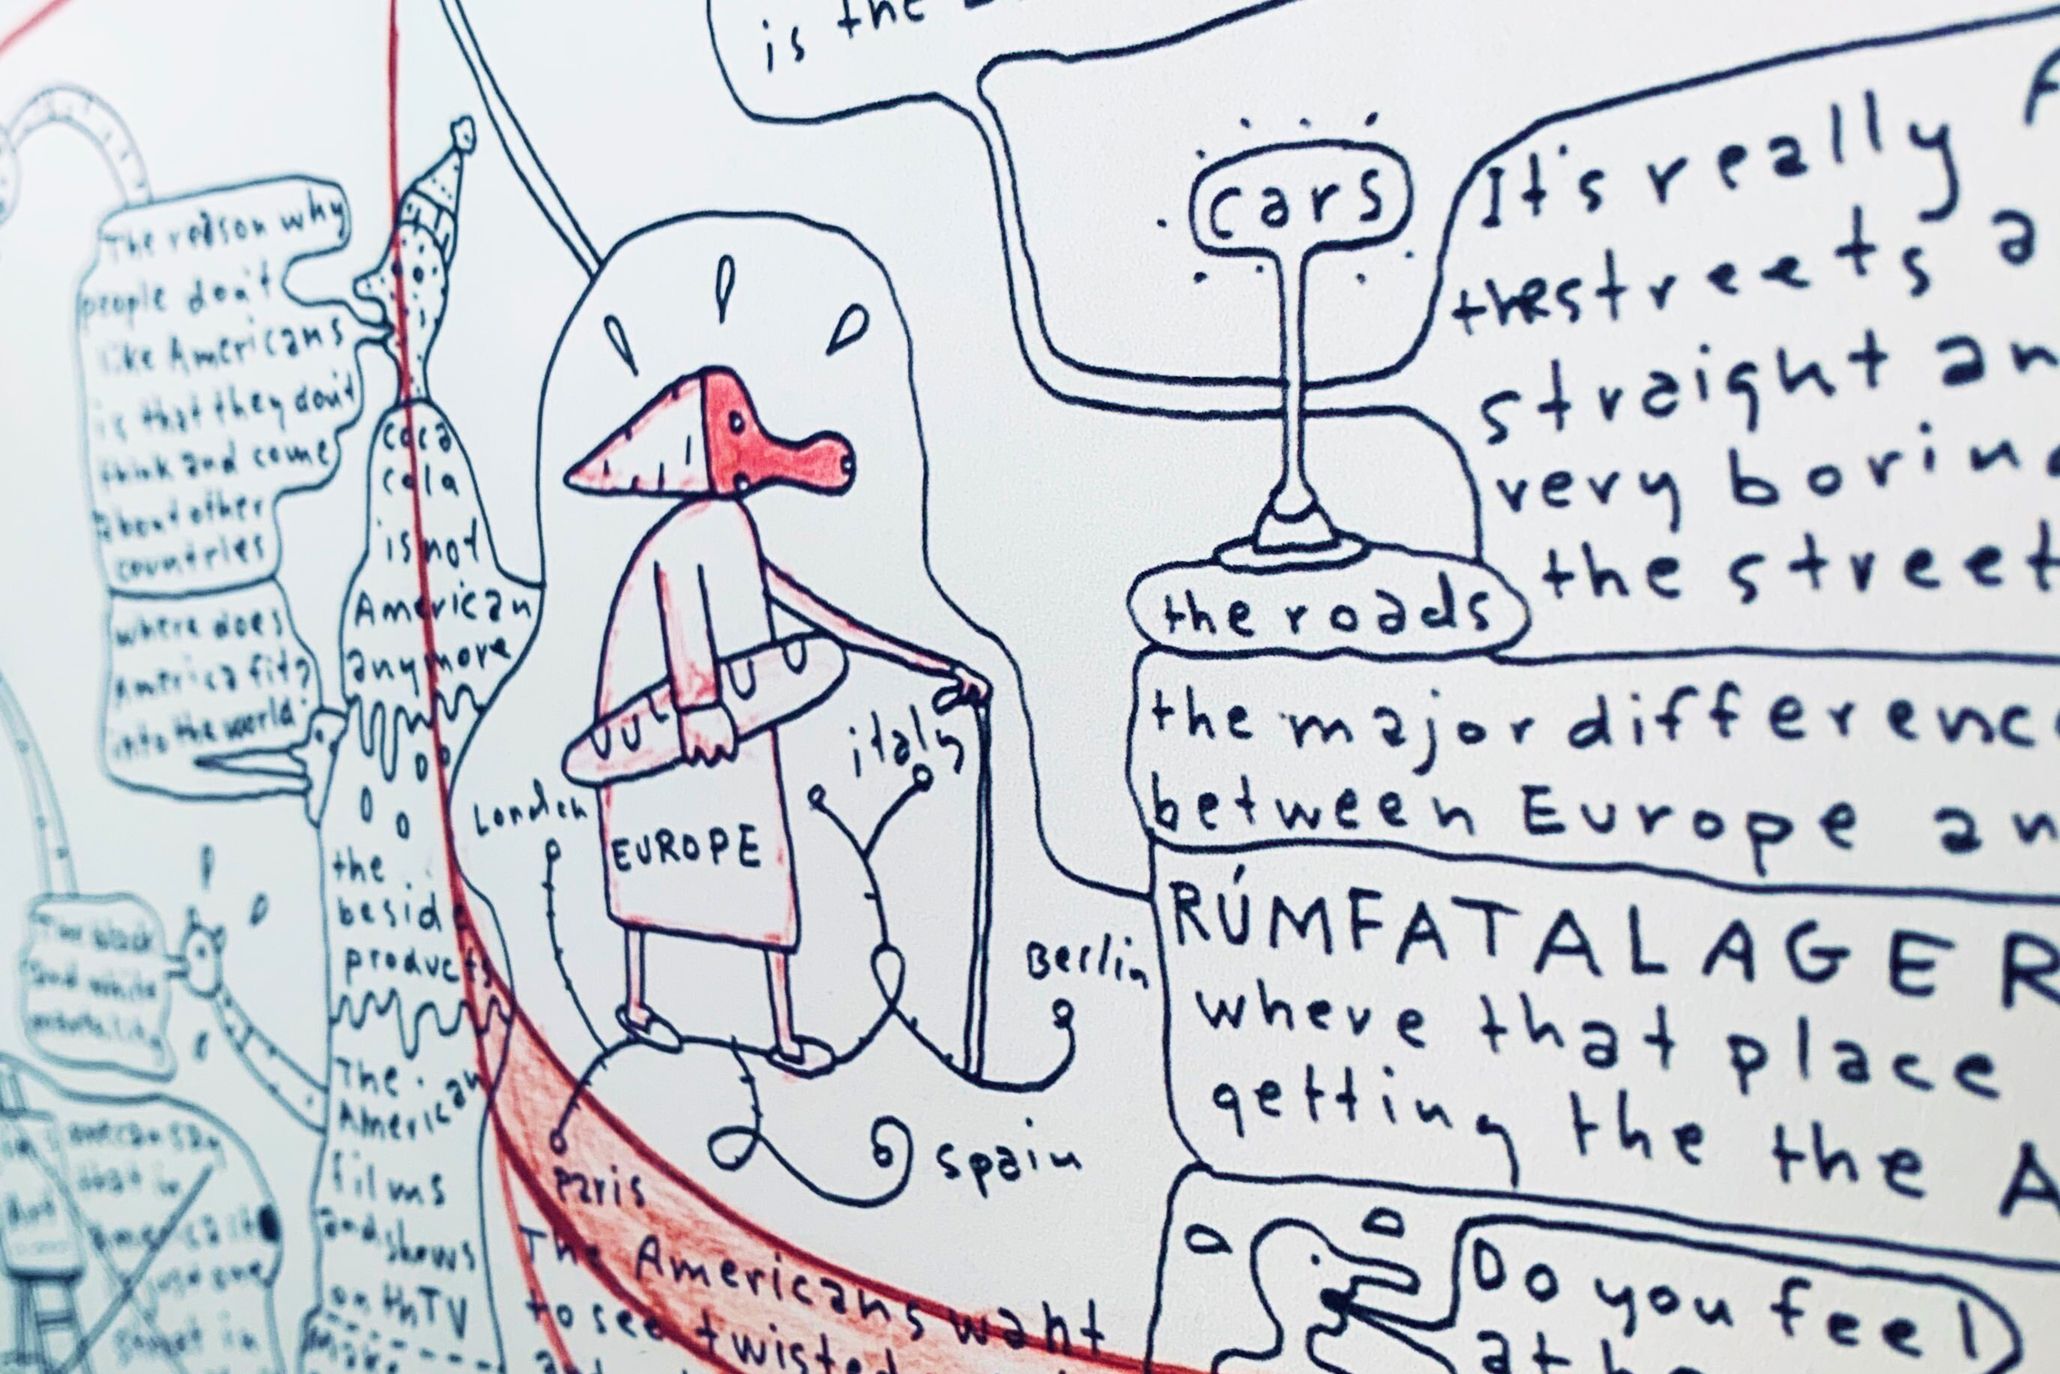 is the
cars
It's really
the streets a
straight an
very boring
the street
the roads
the major differenc
between Europe an
RÚMFATALAGER
where that place
getting the the A
Do you feel
at ho
The reason why
people don't
like Americans
is that they don't
think and come
about other
countries
where does
America fit?
into the world
coca
cola
is not
American
anymore
the
besid
products
The
American
films
and shows
on HnTV
make
EUROPE
London
italy
Berlin
Paris
spain
The Americans want
to see twisted